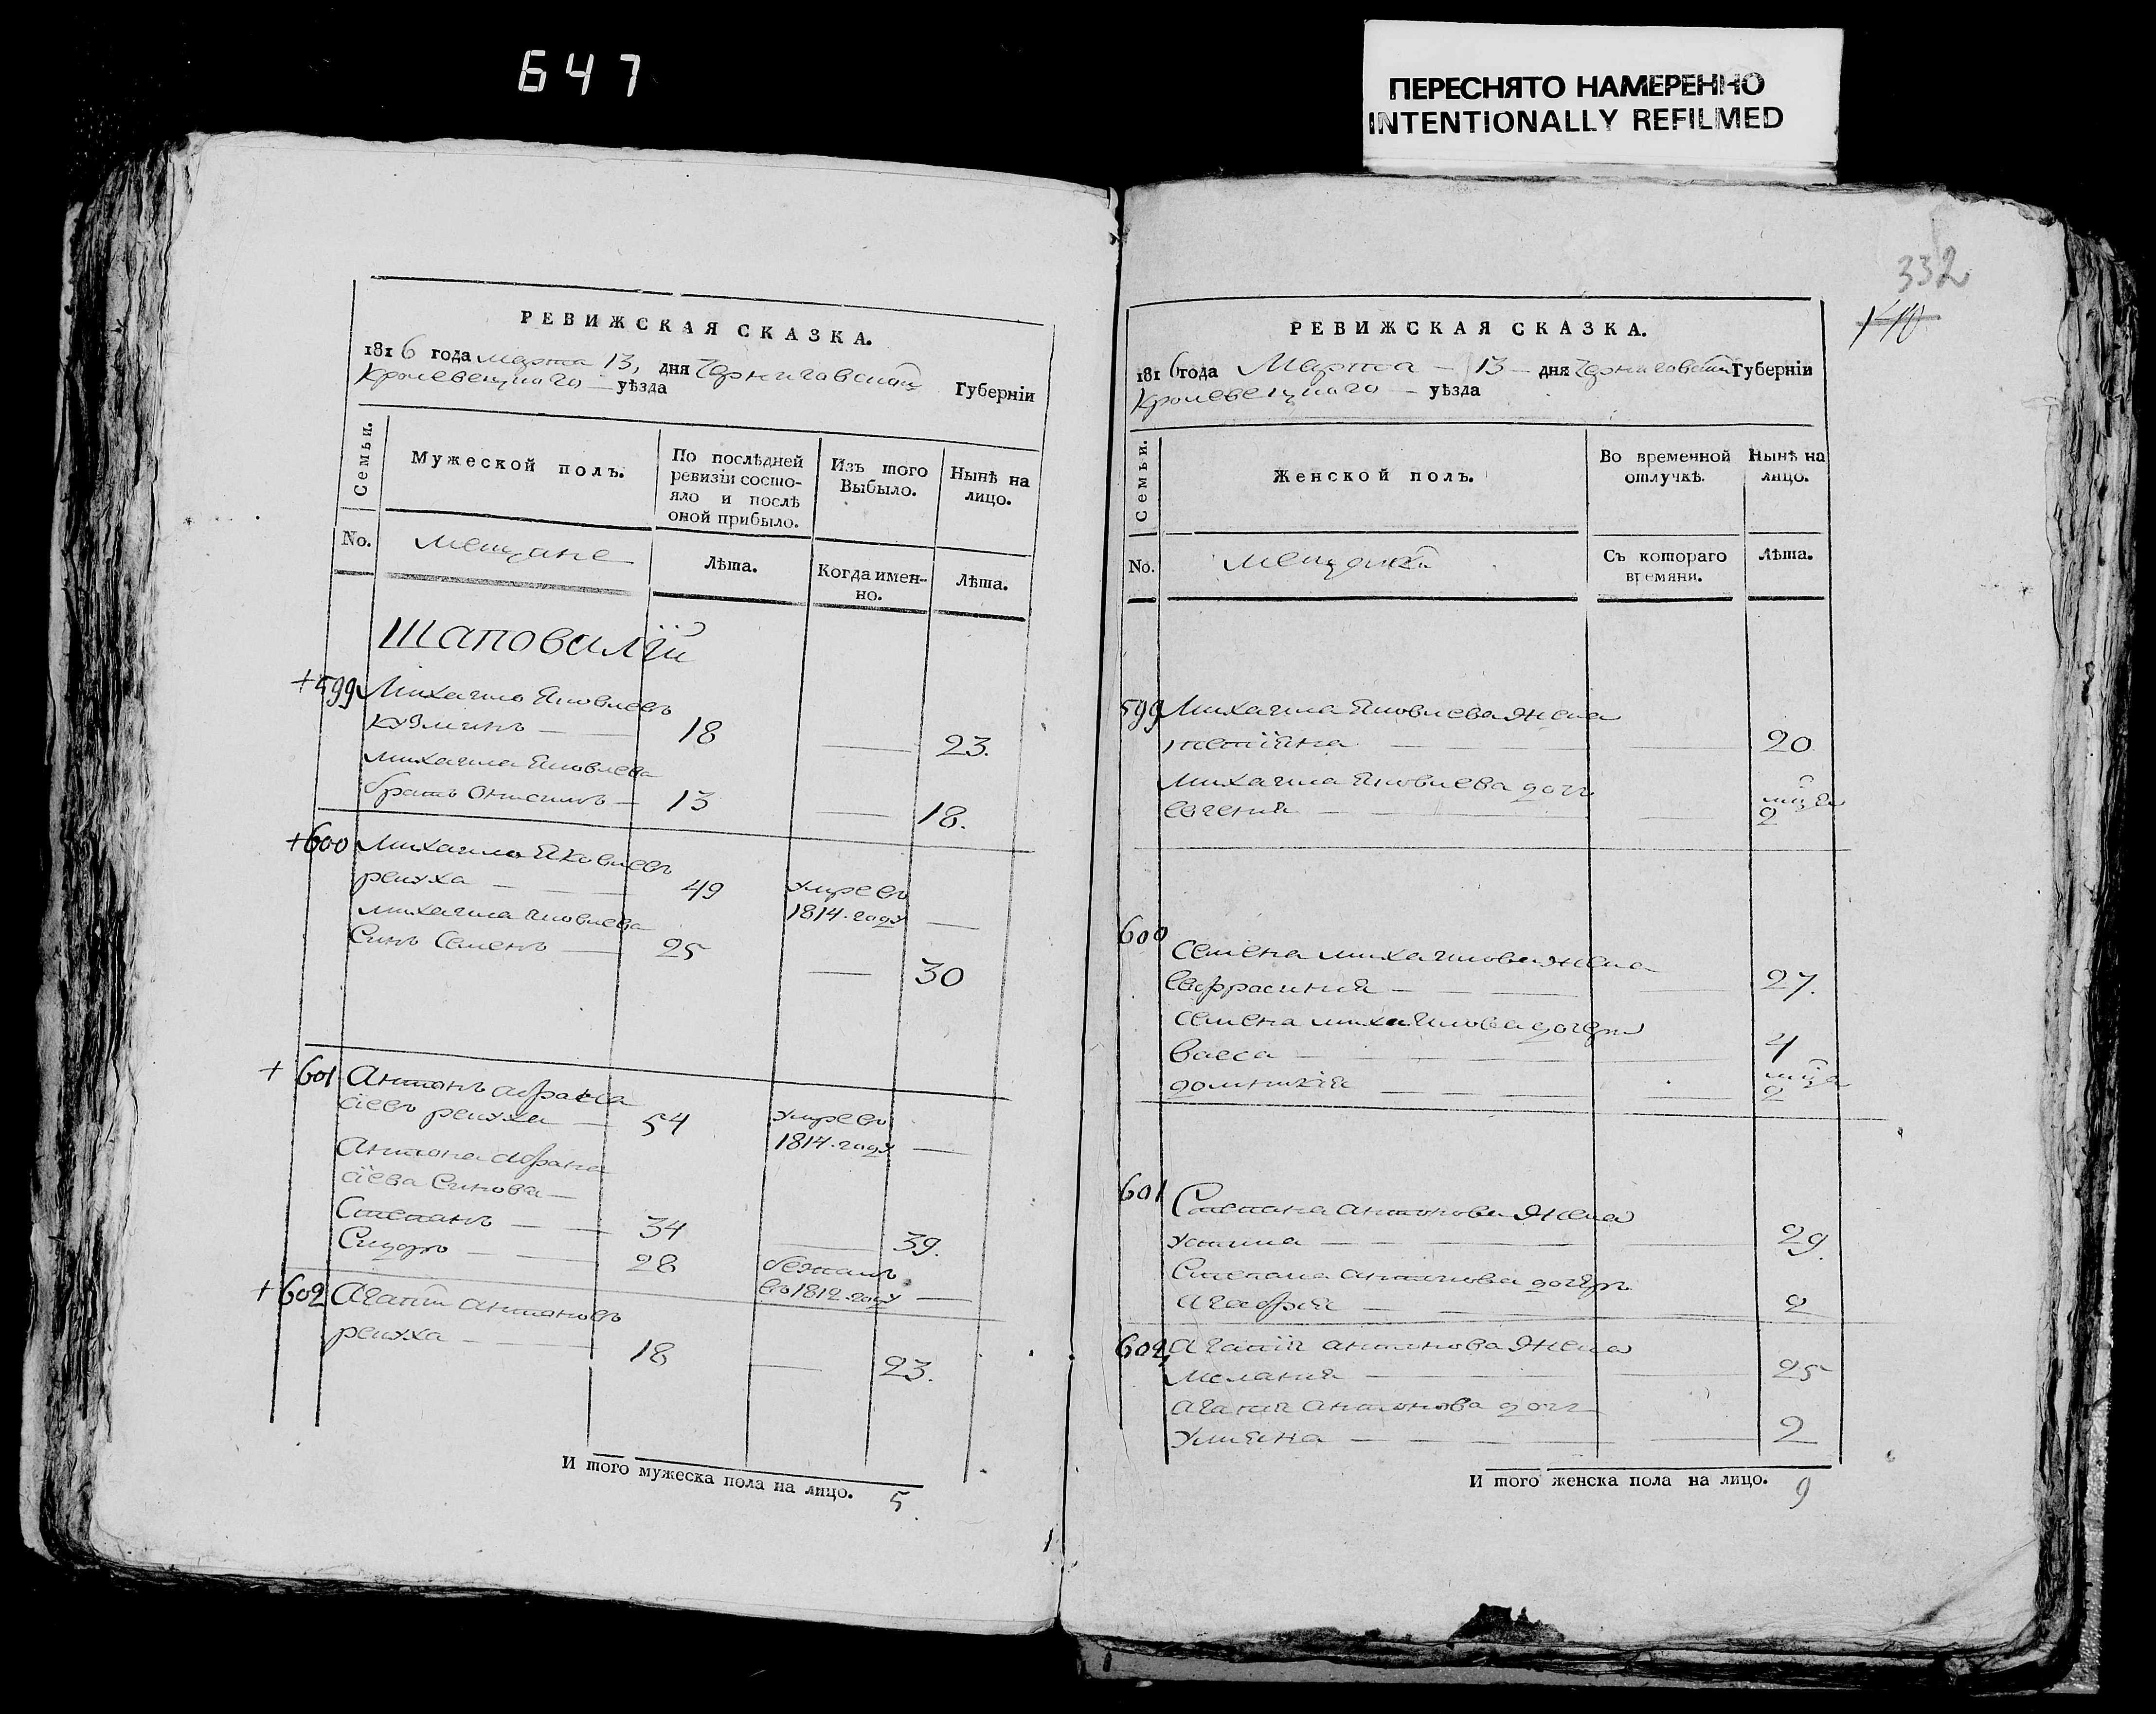 647
ПЕРЕСНЯТО НАМЕРЕННО
INTENTIONALLY REFILMED
РЕВИЖСКАЯ СКАЗКА.
1816 года марта 13, дня Черниговской Губерніи
Кролевецкого — уѣзда
Семьи.
Мужеской полъ.
По послѣдней ревизіи состояло и послѣ оной прибыло.
Изъ того Выбыло.
Нынѣ на лицо.
No.
мещане
Лѣта.
Когда именно.
Лѣта.
Шаповалій
+599 Михаило Яковлевъ
кузминъ — 18 — 23.
михаила Яковлева
братъ Онисимъ — 13 — 18.
+600 Михаило Яковлевъ
репуха — 49 умре въ
1814. году —
михаила Яковлева
Синъ Семенъ — 25 — 30
+ 601 Антонъ афрана
сіевъ репуха — 54 умре въ
1814. году —
Антона афрана
сіева Синова —
Степанъ — 34 — 39.
Сидоръ — 28 бежалъ
въ 1812. году —
+602 Агапій антоновъ
репуха — 18 — 23.
И того мужеска пола на лицо. 5
332
140
РЕВИЖСКАЯ СКАЗКА.
1816 года Марта — 13 — дня Черниговской Губерніи
Кролевецкого — уѣзда
Семьи.
Женской полъ.
Во временной отлучкѣ.
Нынѣ на лицо.
No.
мещанки
Съ котораго времяни.
Лѣта.
599 Михаила Яковлева жена
20
Михаила Яковлева дочъ
Евгения — 2
600
Семена михаилова жена
Евфрасиния — 27.
Семена михаилова дочери
Васса — 4
домникия — 2
601
Степана антонова жена
Устина — 29.
Степана антонова дочеръ
Агафия — 2
602 Агапія антонова жена
Мелания — 25
Агапія антонова дочъ
Улияна — 2
И того женска пола на лицо. 9